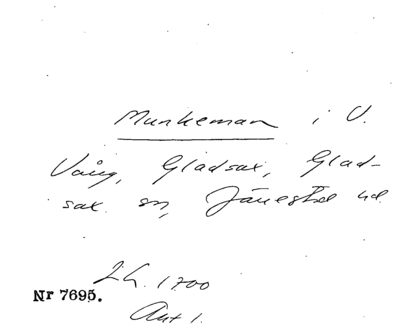 Munkeman i V.
Vång, Gladsax, Glad-
sax sn, Järrestad hd.
LG. 1700
Akt 1.
Nr 7695.